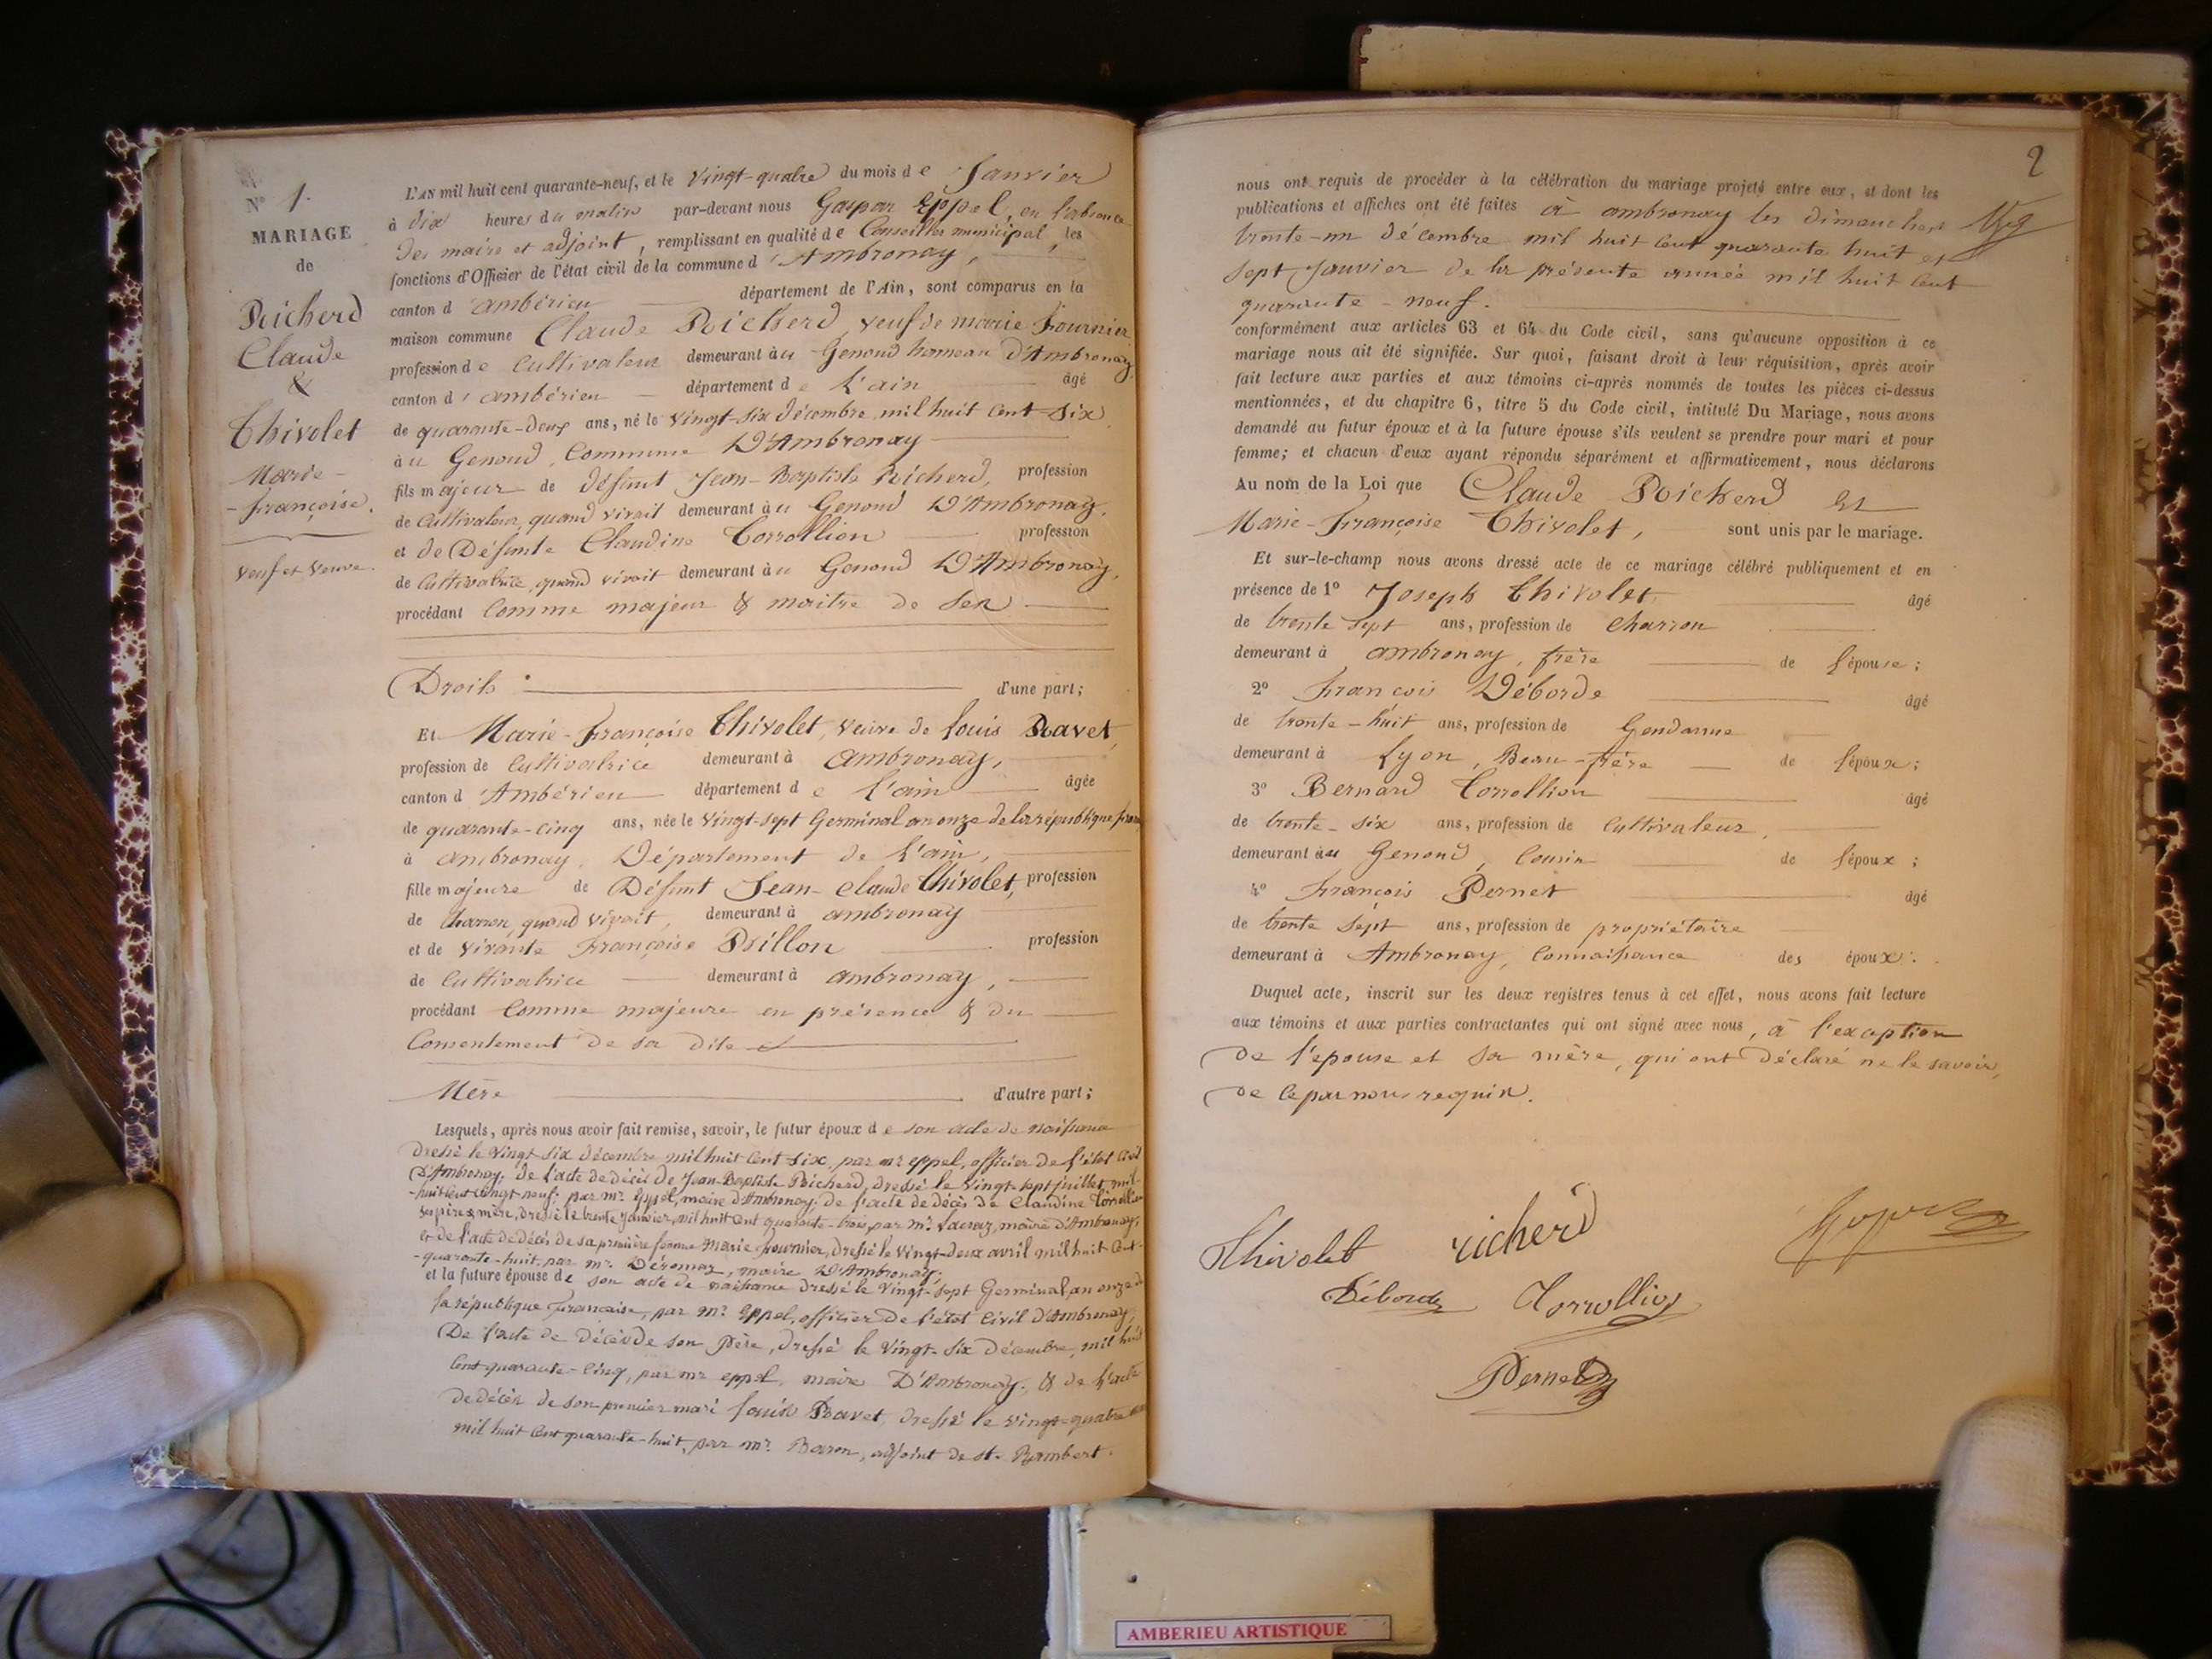 N° 1.
MARIAGE
de
Richerd
Claude
&
Thivolet
Marie-
-françoise.
veuf et veuve.
L'AN mil huit cent quarante-neuf, et le vingt-quatre du mois de Janvier
à dix heures du matin par-devant nous Gaspar Eppel, en l'absence
des maire et adjoint, remplissant en qualité de Conseiller municipal, les
fonctions d'Officier de l'état civil de la commune d'Ambronay,
canton d'ambérieu département de l'Ain, sont comparus en la
maison commune Claude Richerd, veuf de marie fournier,
profession de Cultivateur demeurant au Genoud hameau D'Ambronay,
canton d'ambérieu département de L'ain âgé
de quarante-deux ans, né le vingt-six décembre mil huit cent six
au Genoud, Commune D'Ambronay
fils majeur de défunt Jean-Baptiste Richerd, profession
de Cultivateur, quand vivait demeurant au Genoud D'Ambronay,
et de Défunte Claudine Corrollion profession
de Cultivatrice, quand vivait demeurant au Genoud D'Ambronay,
procédant Comme majeur & maitre de ses
Droits. d'une part;
Et Marie-Françoise Thivolet, veuve de Louis Ravet,
profession de Cultivatrice demeurant à Ambronay,
canton d'Ambérieu département de L'ain âgée
de quarante-cinq ans, née le vingt-sept Germinal an onze de la république
à ambronay, Département de L'ain,
fille majeure de Défunt Jean-Claude Thivolet, profession
de Charron, quand vivait, demeurant à ambronay
et de vivante Françoise Brillon profession
de Cultivatrice demeurant à ambronay,
procédant Comme majeure en présence & du
Consentement de sa dite
Mère d'autre part;
Lesquels, après nous avoir fait remise, savoir, le futur époux de son acte de naissance
dressé le vingt six décembre mil huit cent six, par mr eppel, officier de l'état civil
D'Ambronay, de l'acte de décès de Jean-Baptiste Richerd, dressé le vingt-sept juillet mil
-huit cent vingt-neuf, par mr. maire d'Ambronay; de l'acte de décès de Claudine Corrollion
ses père & mère, dressé le trente janvier, mil huit cent quarante-trois, par mr. maire d'Ambronay;
et de l'acte de décès de sa première femme Marie fournier, dressé le vingt-deux avril mil huit cent-
-quarante-huit, par mr. maire D'Ambronay;
et la future épouse de son acte de naissance dressé le vingt-sept Germinal an onze de
la république Française, par mr. Eppel, officier de l'état Civil d'Ambronay,
De l'acte de décès de son père, dressé le vingt-six décembre, mil huit
Cent quarante-cinq, par mr eppel, maire D'Ambronay. & de l'acte
de décès de son premier mari Louis Ravet, dressé le vingt-quatre
mil huit cent quarante-huit, par mr. Baron, adjoint de st. Rambert.
2
nous ont requis de procéder à la célébration du mariage projeté entre eux, et dont les
publications et affiches ont été faites à ambronay les dimanches
trente-un décembre mil huit cent quarante huit et
sept Janvier de la présente année mil huit cent
quarante-neuf.
conformément aux articles 63 et 64 du Code civil, sans qu'aucune opposition à ce
mariage nous ait été signifiée. Sur quoi, faisant droit à leur réquisition, après avoir
fait lecture aux parties et aux témoins ci-après nommés de toutes les pièces ci-dessus
mentionnées, et du chapitre 6, titre 5 du Code civil, intitulé Du Mariage, nous avons
demandé au futur époux et à la future épouse s'ils veulent se prendre pour mari et pour
femme; et chacun d'eux ayant répondu séparément et affirmativement, nous déclarons
Au nom de la Loi que Claude Richerd et
Marie-Françoise Thivolet, sont unis par le mariage.
Et sur-le-champ nous avons dressé acte de ce mariage célébré publiquement et en
présence de 1° Joseph Thivolet, âgé
de trente sept ans, profession de charron
demeurant à ambronay, frère de l'épouse;
2° François Déborde âgé
de trente-huit ans, profession de Gendarme
demeurant à Lyon, Beau-frère de l'époux;
3° Bernard Corrollion âgé
de trente-six ans, profession de Cultivateur,
demeurant au Genoud, Cousin de l'époux;
4° François Pernet âgé
de trente sept ans, profession de propriétaire
demeurant à Ambronay, Connaissance des époux.
Duquel acte, inscrit sur les deux registres tenus à cet effet, nous avons fait lecture
aux témoins et aux parties contractantes qui ont signé avec nous, à l'exception
de l'épouse et sa mère, qui ont déclaré ne le savoir,
de ce par nous requis.
Thivolet richerd
Déborde Corrollion
Pernet
AMBERIEU ARTISTIQUE